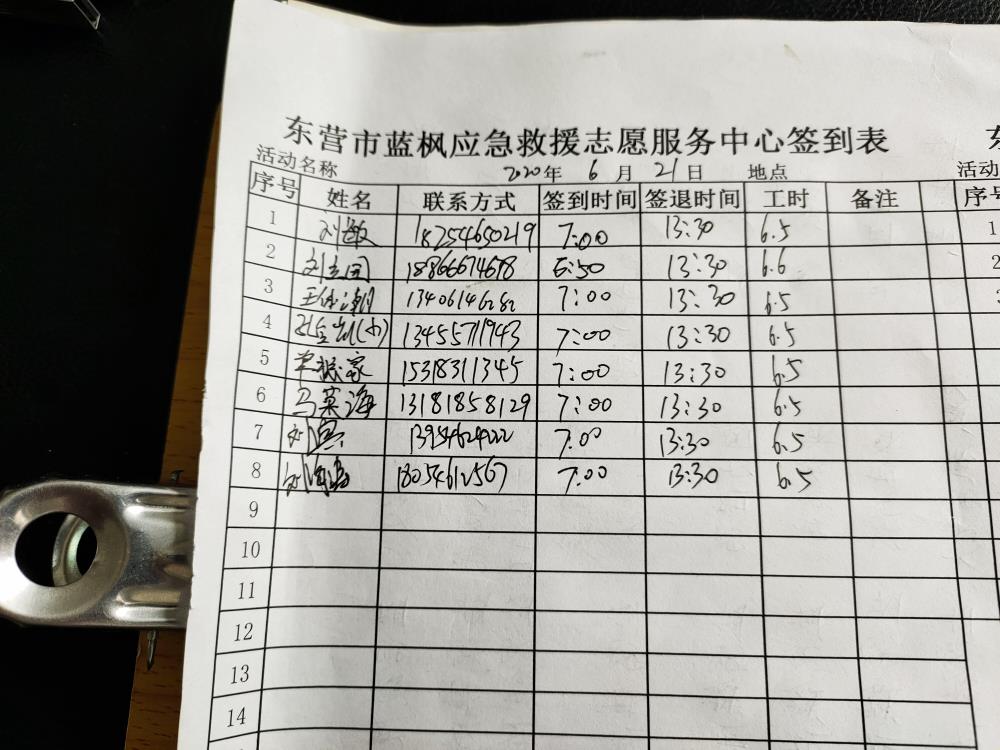 东营市蓝枫应急救援志愿服务中心签到表
活动名称 2020年 6月 21日 地点
序号 姓名 联系方式 签到时间 签退时间 工时 备注
1 刘敏 18254650219 7:00 13:30 6.5
2 刘志国 18866674678 6:50 13:30 6.6
3 13406146282 7:00 13:30 6.5
4 13455711943 7:00 13:30 6.5
5 15318311345 7:00 13:30 6.5
6 马英海 13181858129 7:00 13:30 6.5
7 7:00 13:30 6.5
8 18054612567 7:00 13:30 6.5
9
10
11
12
13
14
活动
序号
1
2